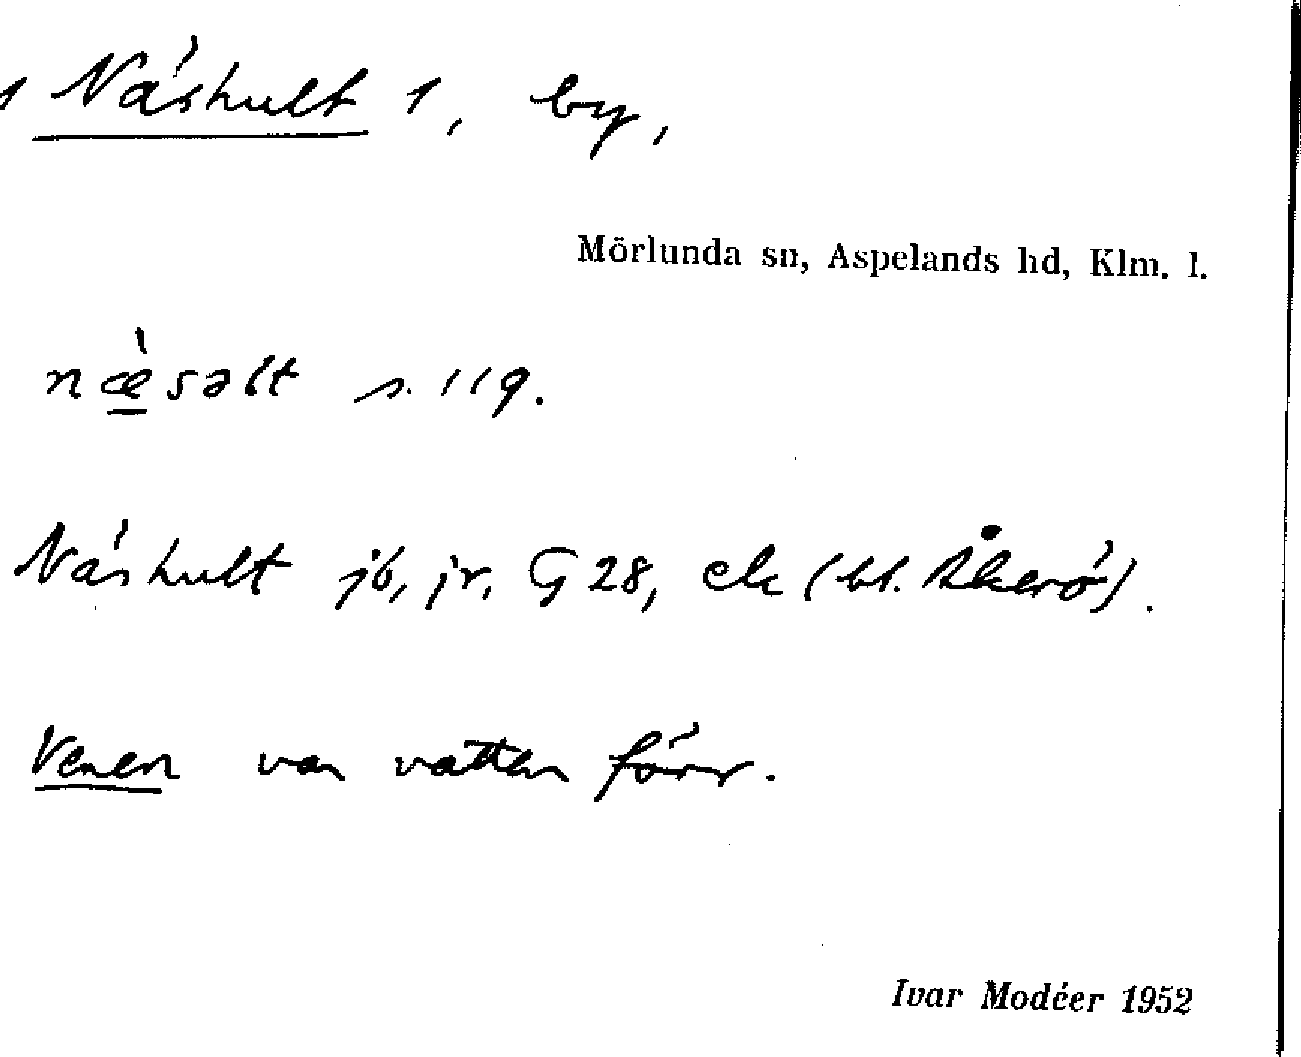 1 Näshult 1, by,
Mörlunda sn, Aspelands hd, Klm. l.
næ̀səlt s. 119.
Näshult jb, jr, G 28, ek (bl. Åkerö).
Venen var vatten förr.
Ivar Modéer 1952